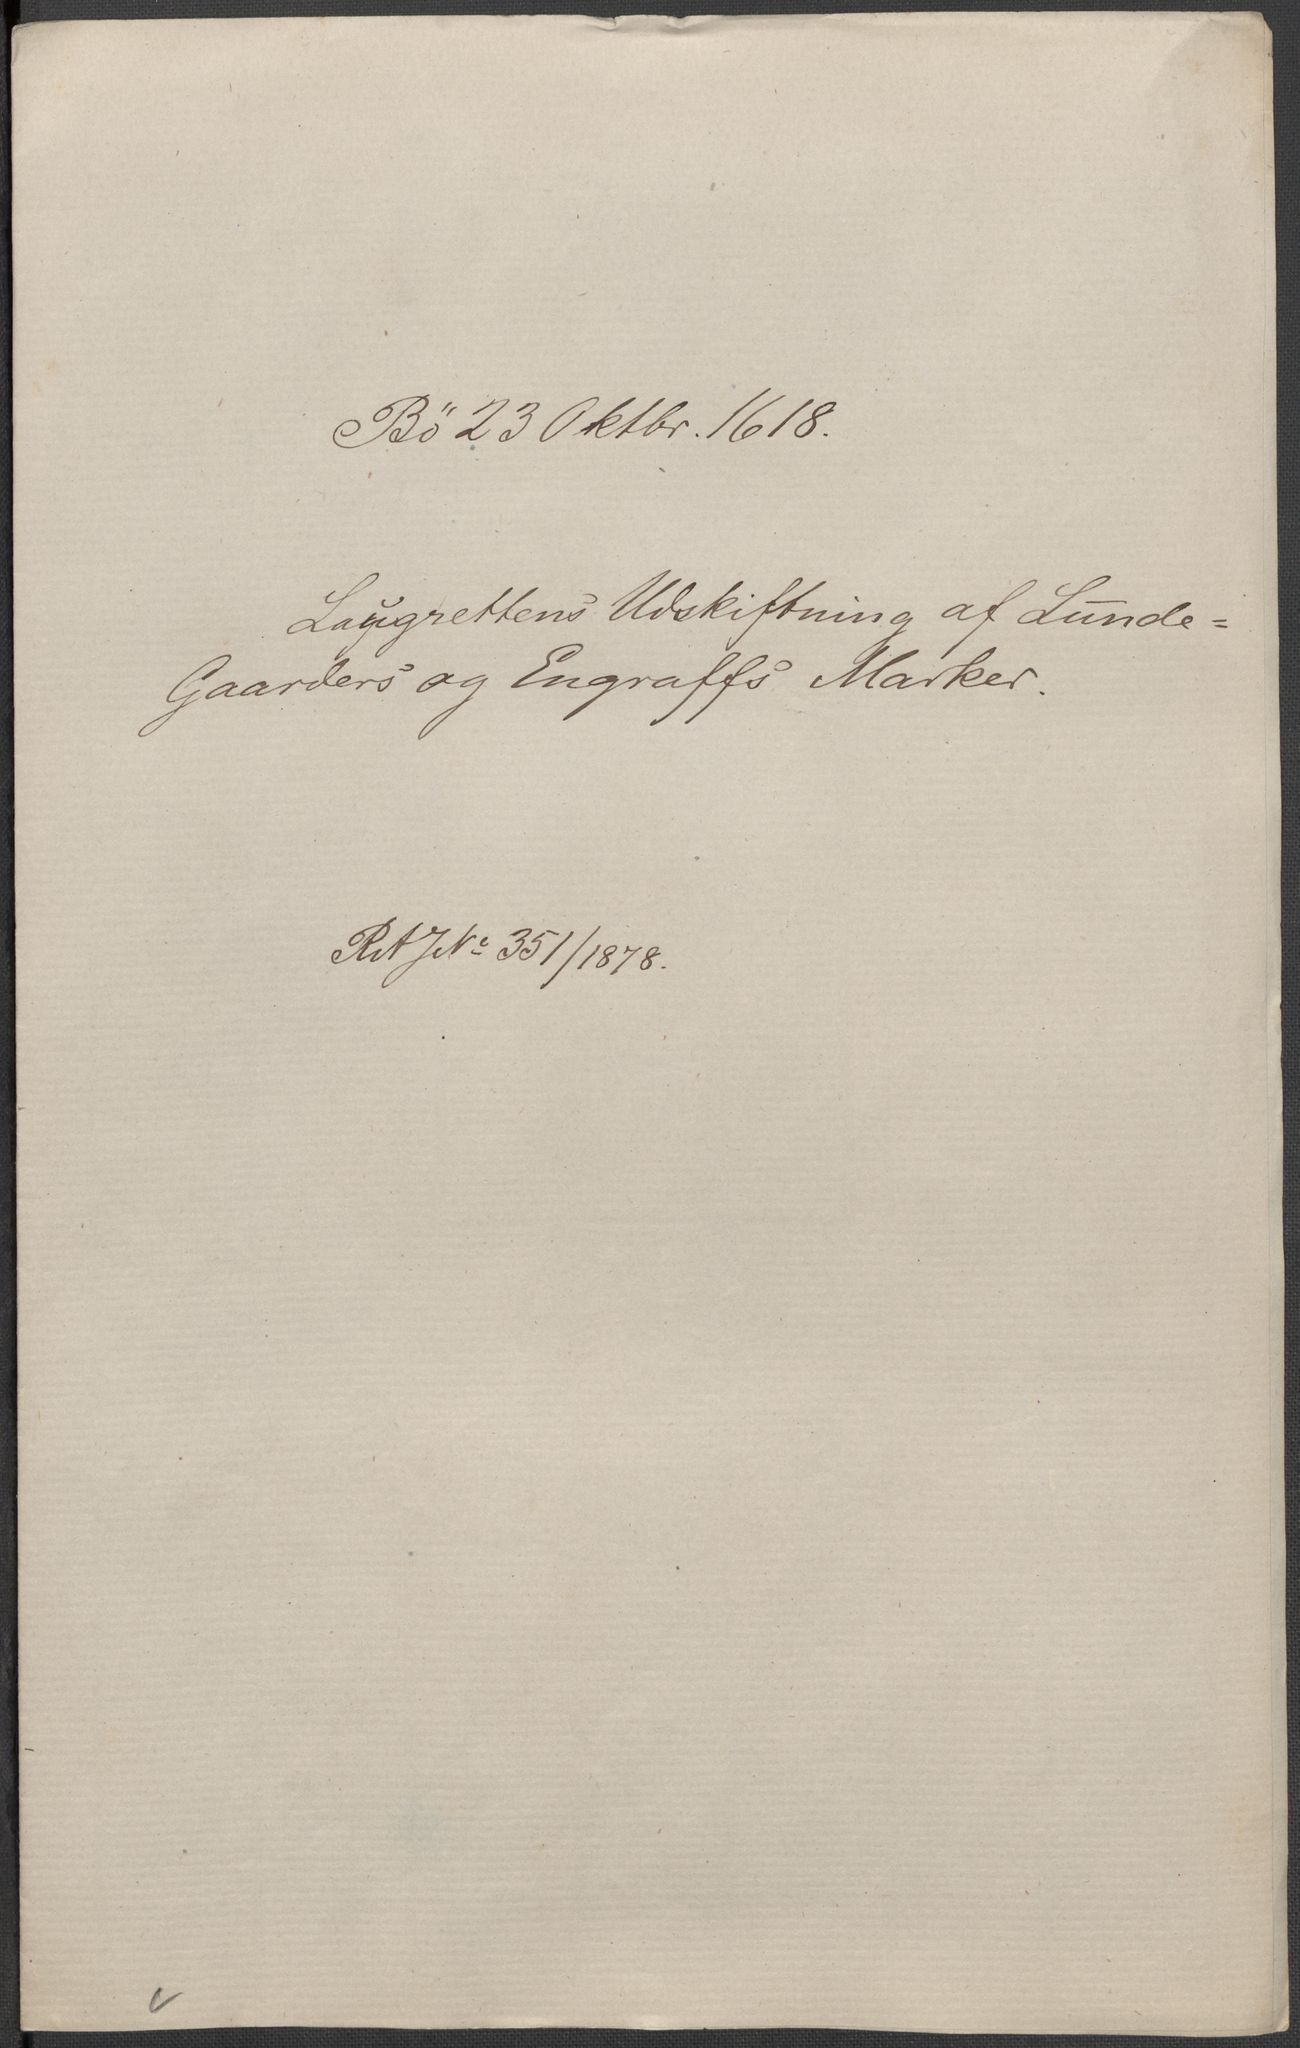 Bö 23 Oktbr. 1618.
Laugrettens Udskiftning af Lunde=
Gaarders og Engraffs Marker.
RA J№ 351/1878.